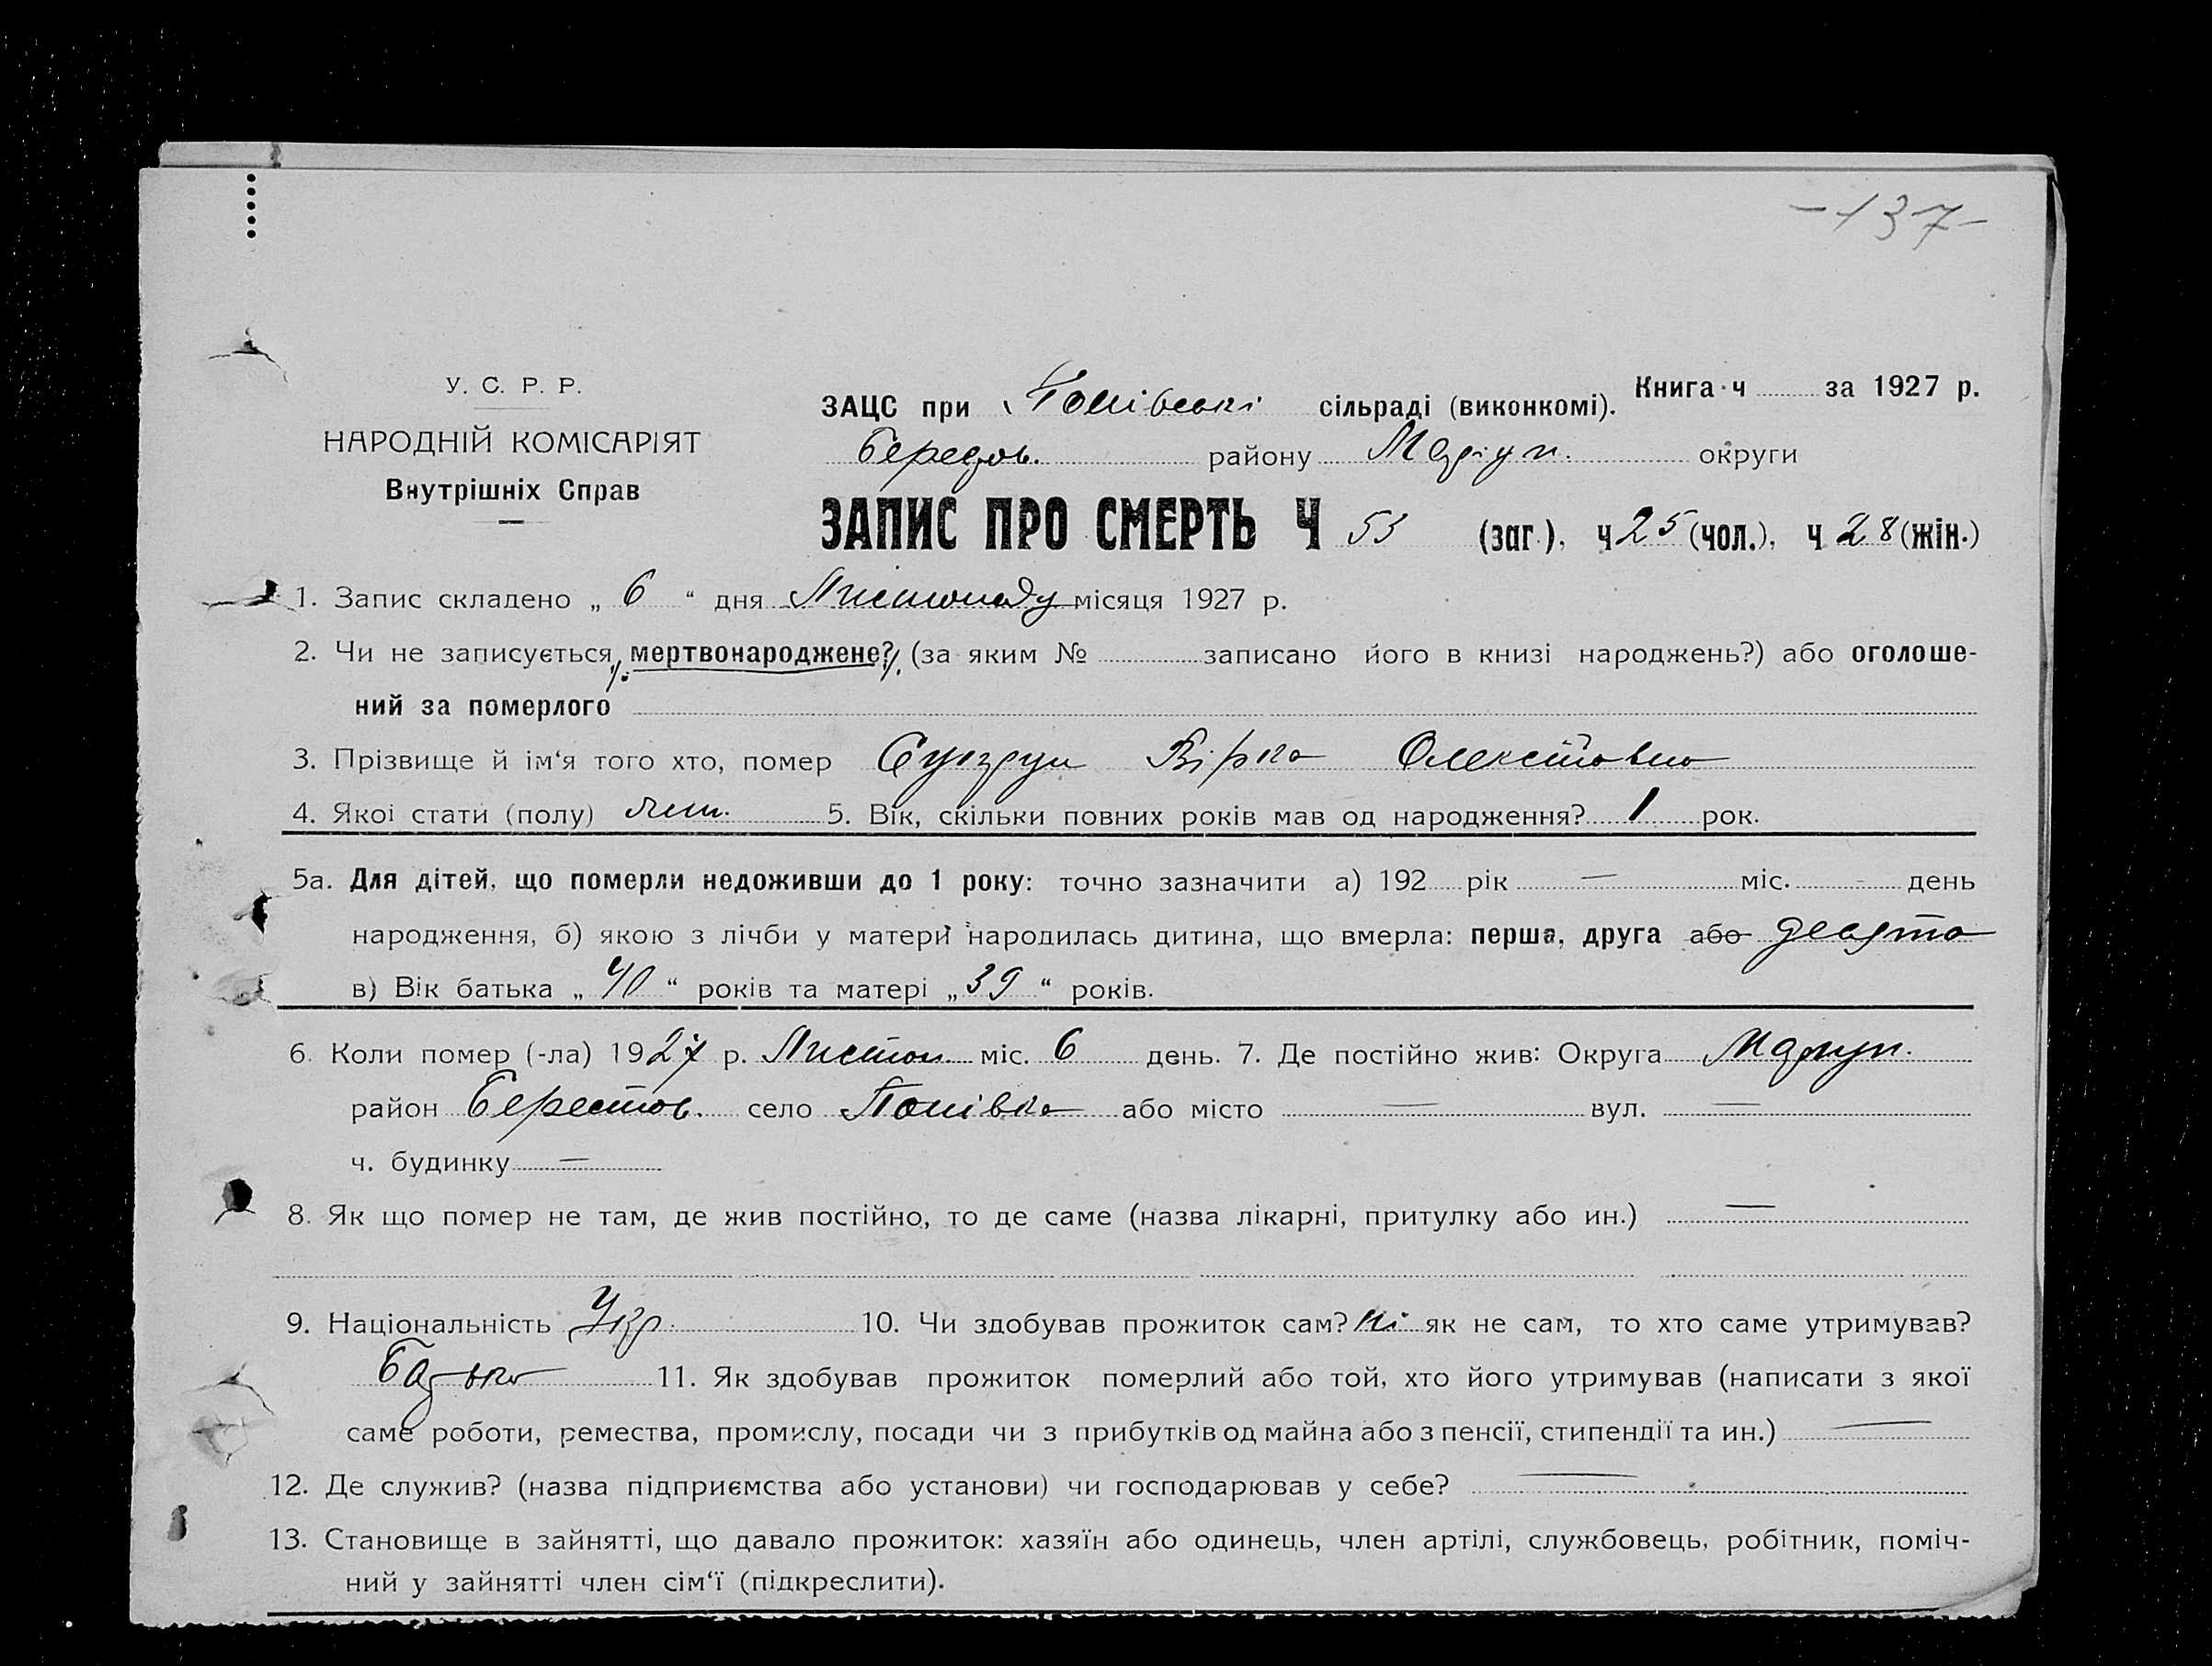 -137-
У. С. Р. Р.
НАРОДНІЙ КОМІСАРІЯТ
Внутрішніх Справ
Книга ч за 1927 р.
ЗАЦС при Попівські сільраді (виконкомі).
района Маріуп. округи
ЗАПИС ПРО СМЕРТЬ Ч 53 (заг.), ч 25 (чол.), ч 28 (жін.)
1. Запис складено „ 6 “ дня Листопаду місяця 1927 р.
2. Чи не записується мертвонароджене? (за яким № записано його в книзі народжень?) або оголоше-
ний за померлого
3. Прізвище й ім‘я того хто, помер Вірка
4. Якої стати (полу) 5. Вік, скільки повних років мав од народження? 1 рок.
5а. Для дітей, що померли недоживши до 1 року: точно зазначити а) 192 рік — міс. - день
народження, б) якою з лічби у матери народилась дитина, що вмерла: перша, друга або десята
в) Вік батька „ 40 “ років та матері „ 39 “ років.
6. Коли помер (-ла) 1927 р. Листоп. міс. 6 день. 7. Де постійно жив: Округа Маріуп.
район Берестов. село Попівка або місто — вул. —
ч. будинку —
8. Як що помер не там, де жив постійно, то де саме (назва лікарні, притулку або ин.) —
9. Національність Укр. 10. Чи здобував прожиток сам? ні як не сам, то хто саме утримував?
Батько 11. Як здобував прожиток померлий або той, хто його утримував (написати з якої
саме роботи, ремества, промислу, посади чи з прибутків од майна або з пенсії, стипендії та ин.) —
12. Де служив? (назва підприємства або установи) чи господарював у себе? —
13. Становище в зайнятті, що давало прожиток: хазяїн або одинець, член артілі, службовець, робітник, поміч-
ний у зайнятті член сім‘ї (підкреслити).